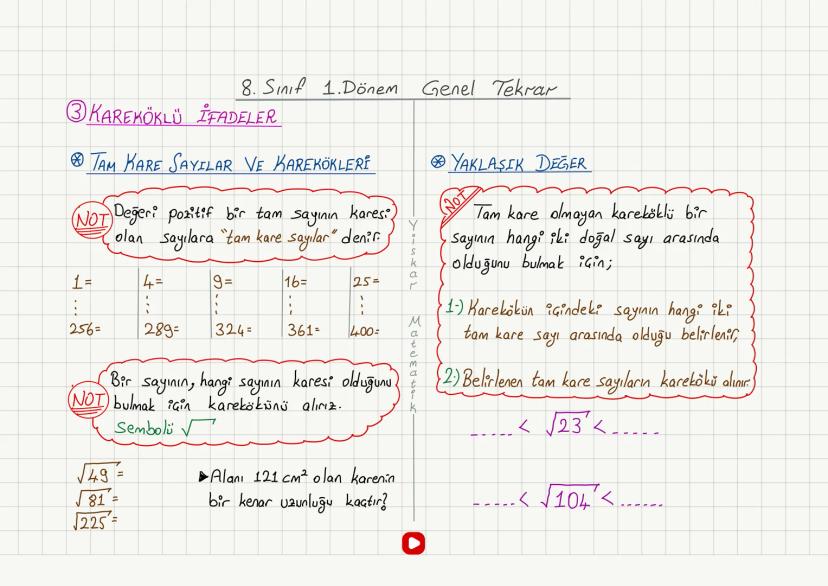 8. Sınıf 1. Dönem Genel Tekrar
③ KAREKÖKLÜ İFADELER
⊛ TAM KARE SAYILAR VE KAREKÖKLERİ
NOT
Değeri pozitif bir tam sayının karesi
olan sayılara "tam kare sayılar" denir.
1= 4= 9= 16= 25=
256= 289= 324= 361= 400=
NOT
Bir sayının, hangi sayının karesi olduğunu
bulmak için karekökünü alırız.
Sembolü √
√49 =
√81 =
√225 =
▶Alanı 121 cm² olan karenin
bir kenar uzunluğu kaçtır?
Yıskar Matematik
⊛ YAKLAŞIK DEĞER
NOT
Tam kare olmayan kareköklü bir
sayının hangi iki doğal sayı arasında
olduğunu bulmak için;
1-) Karekökün içindeki sayının hangi iki
tam kare sayı arasında olduğu belirlenir,
2-) Belirlenen tam kare sayıların karekökü alınır.
..... < √23 < ......
..... < √104 < ......